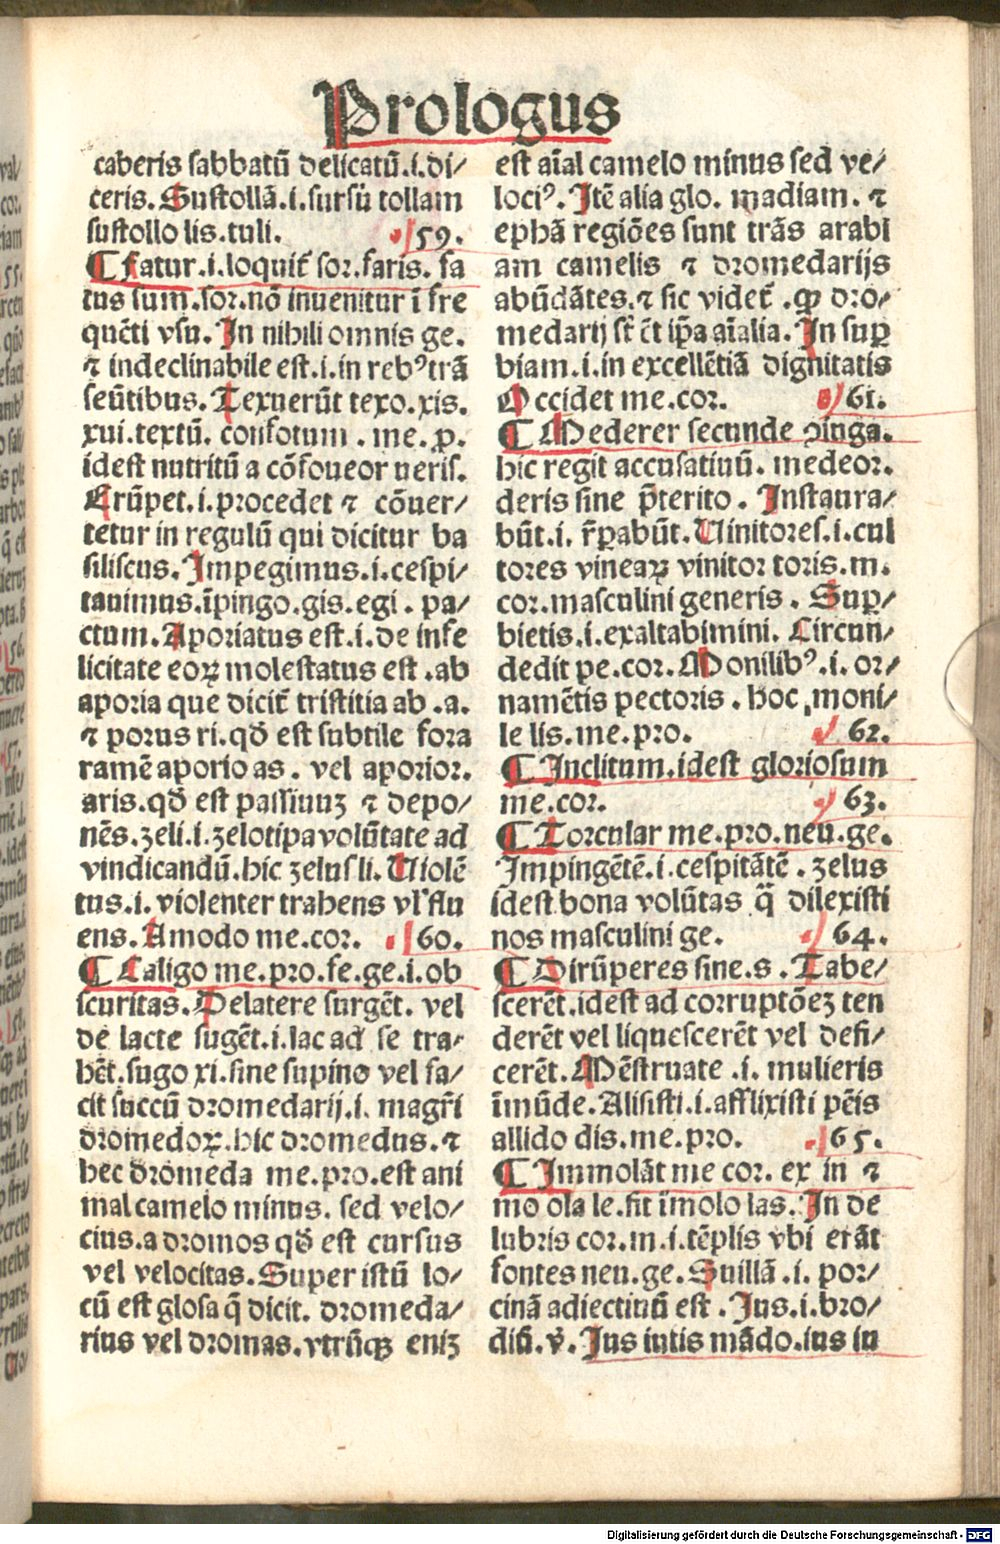 Prologus
caberis sabbatū delicatū.i.di/
ceris. Sustollā.i.sursū tollam
sustollo lis.tuli. 59.
¶ Fatur.i.loquit̄ sor.faris. fa
tus sum.sor.nō inuenitur ī fre
quēti vsu. In nihili omnis ge.
⁊ indeclinabile est.i.in rebꝰ trā
seūtibus. Texuerūt texo.xis.
xui.textū. confotum . me. ꝓ.
idest nutritū a cōfoueor ueris.
Erūpet.i.procedet ⁊ cōuer/
tetur in regulū qui dicitur ba
siliscus. Impegimus.i.cespi/
tauimus.īpingo.gis.egi . pa/
ctum. Aporiatus est.i.de infe
licitate eoꝝ molestatus est .ab
aporia que dicit̄ tristitia ab .a.
⁊ porus ri.qđ est subtile fora
ramē aporio as . vel aporior.
aris.qđ est passiuuʒ ⁊ depo/
nēs.zeli.i.zelotipa volūtate ad
vindicandū.hic zelus li. Violē
tus.i.violenter trahens vl' flu
ens. Amodo me.cor. 60.
¶ Caligo me.pro.fe.ge.i.ob
scuritas. Delatere surgēt. vel
de lacte sugēt.i.lac ad se tra/
hēt.sugo xi.sine supino vel fa/
cit succū dromedarij.i. magr̄i
dromedoꝝ.hic dromedus.⁊
hec dromeda me.pro.est ani
mal camelo minus. sed velo/
cius.a dromos qđ est cursus
vel velocitas. Super istū lo/
cū est glosa q̄ dicit. dromeda/
rius vel dromas.vtrūqꝫ eniʒ
est aīal camelo minus sed ve/
lociꝰ. Itē alia glo. madiam. ⁊
ephā regiōes sunt trās arabi
am camelis ⁊ dromedarijs
abūdātes.⁊ sic videt̄ .ꝙ dro/
medarij st̄ ēt ip̄a aīalia. In suꝑ
biam.i.in excellētiā dignitatis
Occidet me.cor. 61.
¶ Mederer secunde ꝯiuga.
hic regit accusatiuū. medeor.
deris sine p̄terito . Instaura/
būt.i. r̄ꝑabūt. Vinitores.i.cul
tores vineaꝝ vinitor toris.m.
cor.masculini generis . Suꝑ/
bietis.i.exaltabimini. Circun/
dedit pe.cor. Monilibꝰ.i. or/
namētis pectoris . hoc moni/
le lis.me.pro. 62.
¶ Inclitum.idest gloriosum
me.cor. 63.
¶ Torcular me.pro.neu.ge.
Impingētē.i.cespitātē . zelus
idest bona volūtas q̄ dilexisti
nos masculini ge. 64.
¶ Dirūperes sine.s . Tabe/
scerēt.idest ad corruptōeʒ ten
derēt vel liquescerēt vel defi/
cerēt. Mēstruate .i. mulieris
īmūde. Alisisti.i.afflixisti pēis
allido dis.me.pro. 65.
¶ Immolāt me cor. ex in ⁊
mo ola le.fit īmolo las. In de
lubris cor.m.i.tēplis vbi erāt
fontes neu.ge. Suillā .i. por/
cinā adiectiuū est . Ius.i.bro/
diū.v̄. Ius iutis mādo.ius in
Digitalisierung gefördert durch die Deutsche Forschungsgemeinschaft - DFG